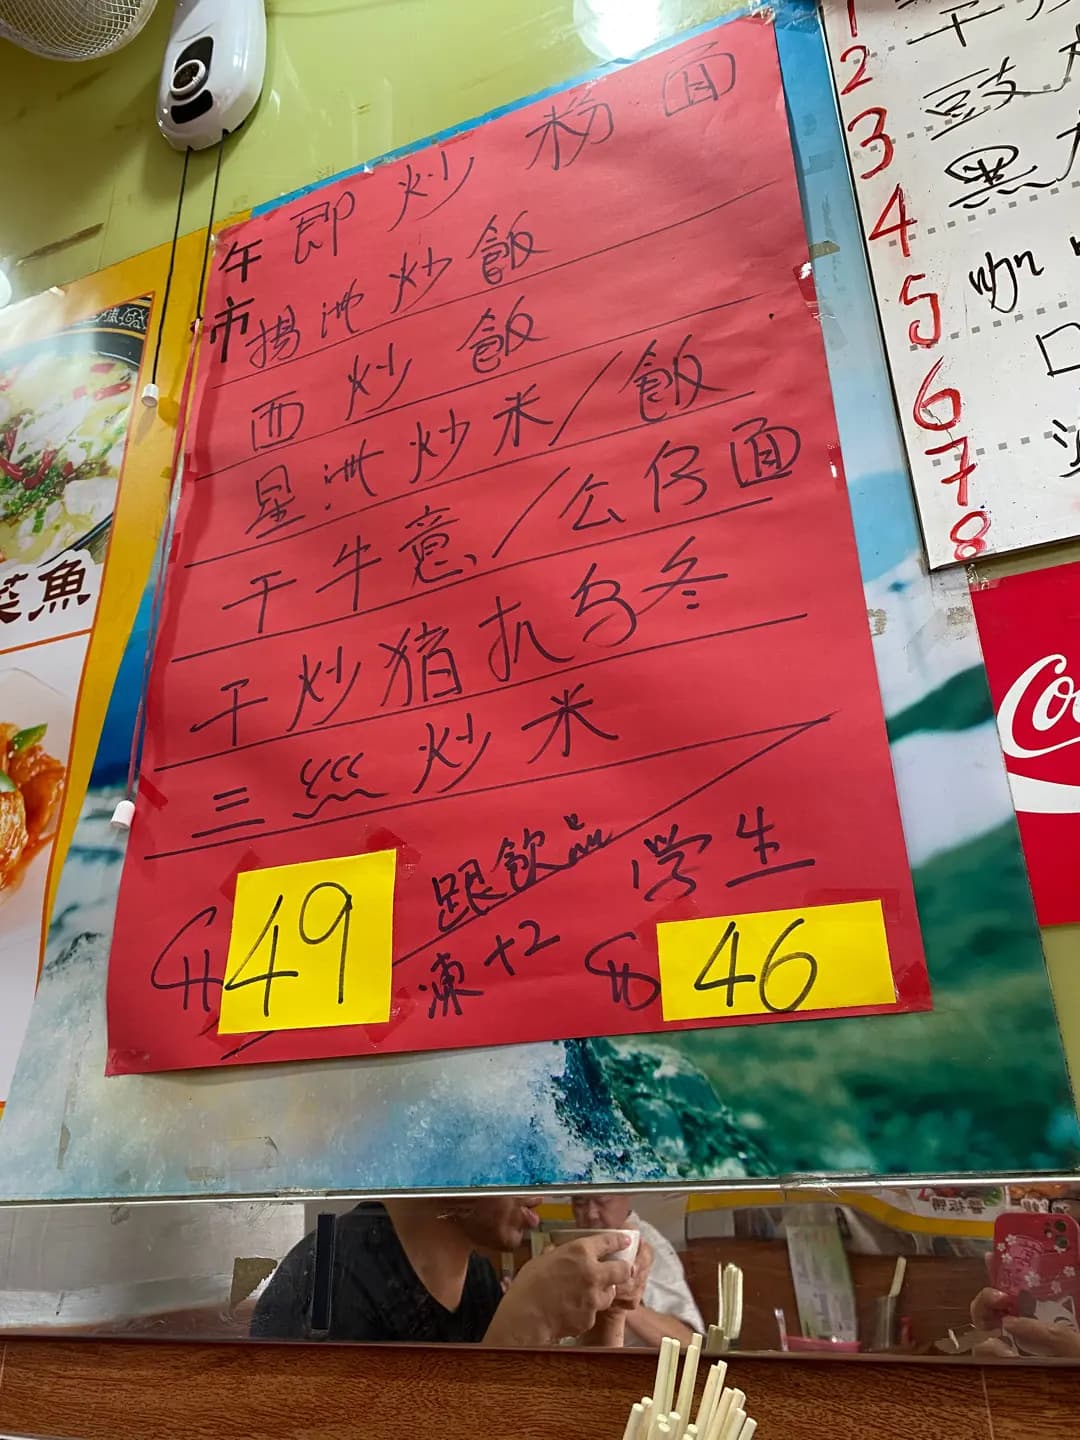 午市
即炒粉面
揚洲炒飯
西炒飯
星洲炒米/飯
干牛意/公仔面
干炒猪扒乌冬
三丝炒米
跟飲品
凍+2
49
学生
46
菜魚
1
2 豉
3 黑
4
5 咖
6
7
8
Co